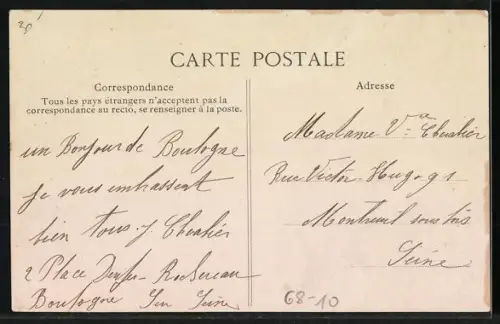 CARTE POSTALE
Correspondance
Tous les pays étrangers n'acceptent pas la
correspondance au recto, se renseigner à la poste.
un Bonjour de Boulogne
je vous embrassent
bien tous. J. Chevalier
2 Place Denfer-Rochereau
Boulogne Sur Seine
Adresse
Madame Vve Chevalier
Rue Victor-Hugo 91
Montreuil sous bois
Seine
68-10